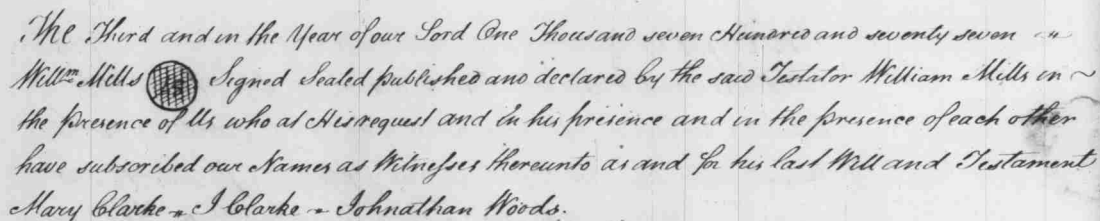 The Third and in the Year of our Lord One Thousand seven Hundred and seventy seven
Willm Mills LS Signed Sealed published and declared by the said Testator William Mills in
the presence of Us who at His request and in his presence and in the presence of each other
have subscribed our Names as Witnesses thereunto as and for his last Will and Testament
Mary Clarke - J Clarke - Johnathan Woods.